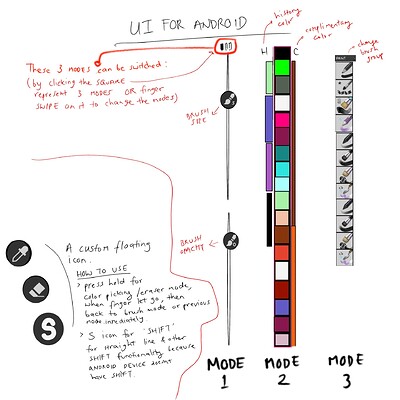 UI FOR ANDROID
history color
complimentary color
change brush group
H
C
These 3 MODES can be switched:
(by clicking the SQUARE
represent 3 MODES OR finger
SWIPE on it to change the modes)
BRUSH SIZE
BRUSH OPACITY
A custom floating
icon.
HOW TO USE
> press held for
color picking/eraser mode,
when finger let go, then
back to brush mode or previous
mode immediately.
> S icon for 'SHIFT'
for straight line & other
SHIFT functionality because
ANDROID DEVICE
have SHIFT.
S
MODE 1
MODE 2
MODE 3